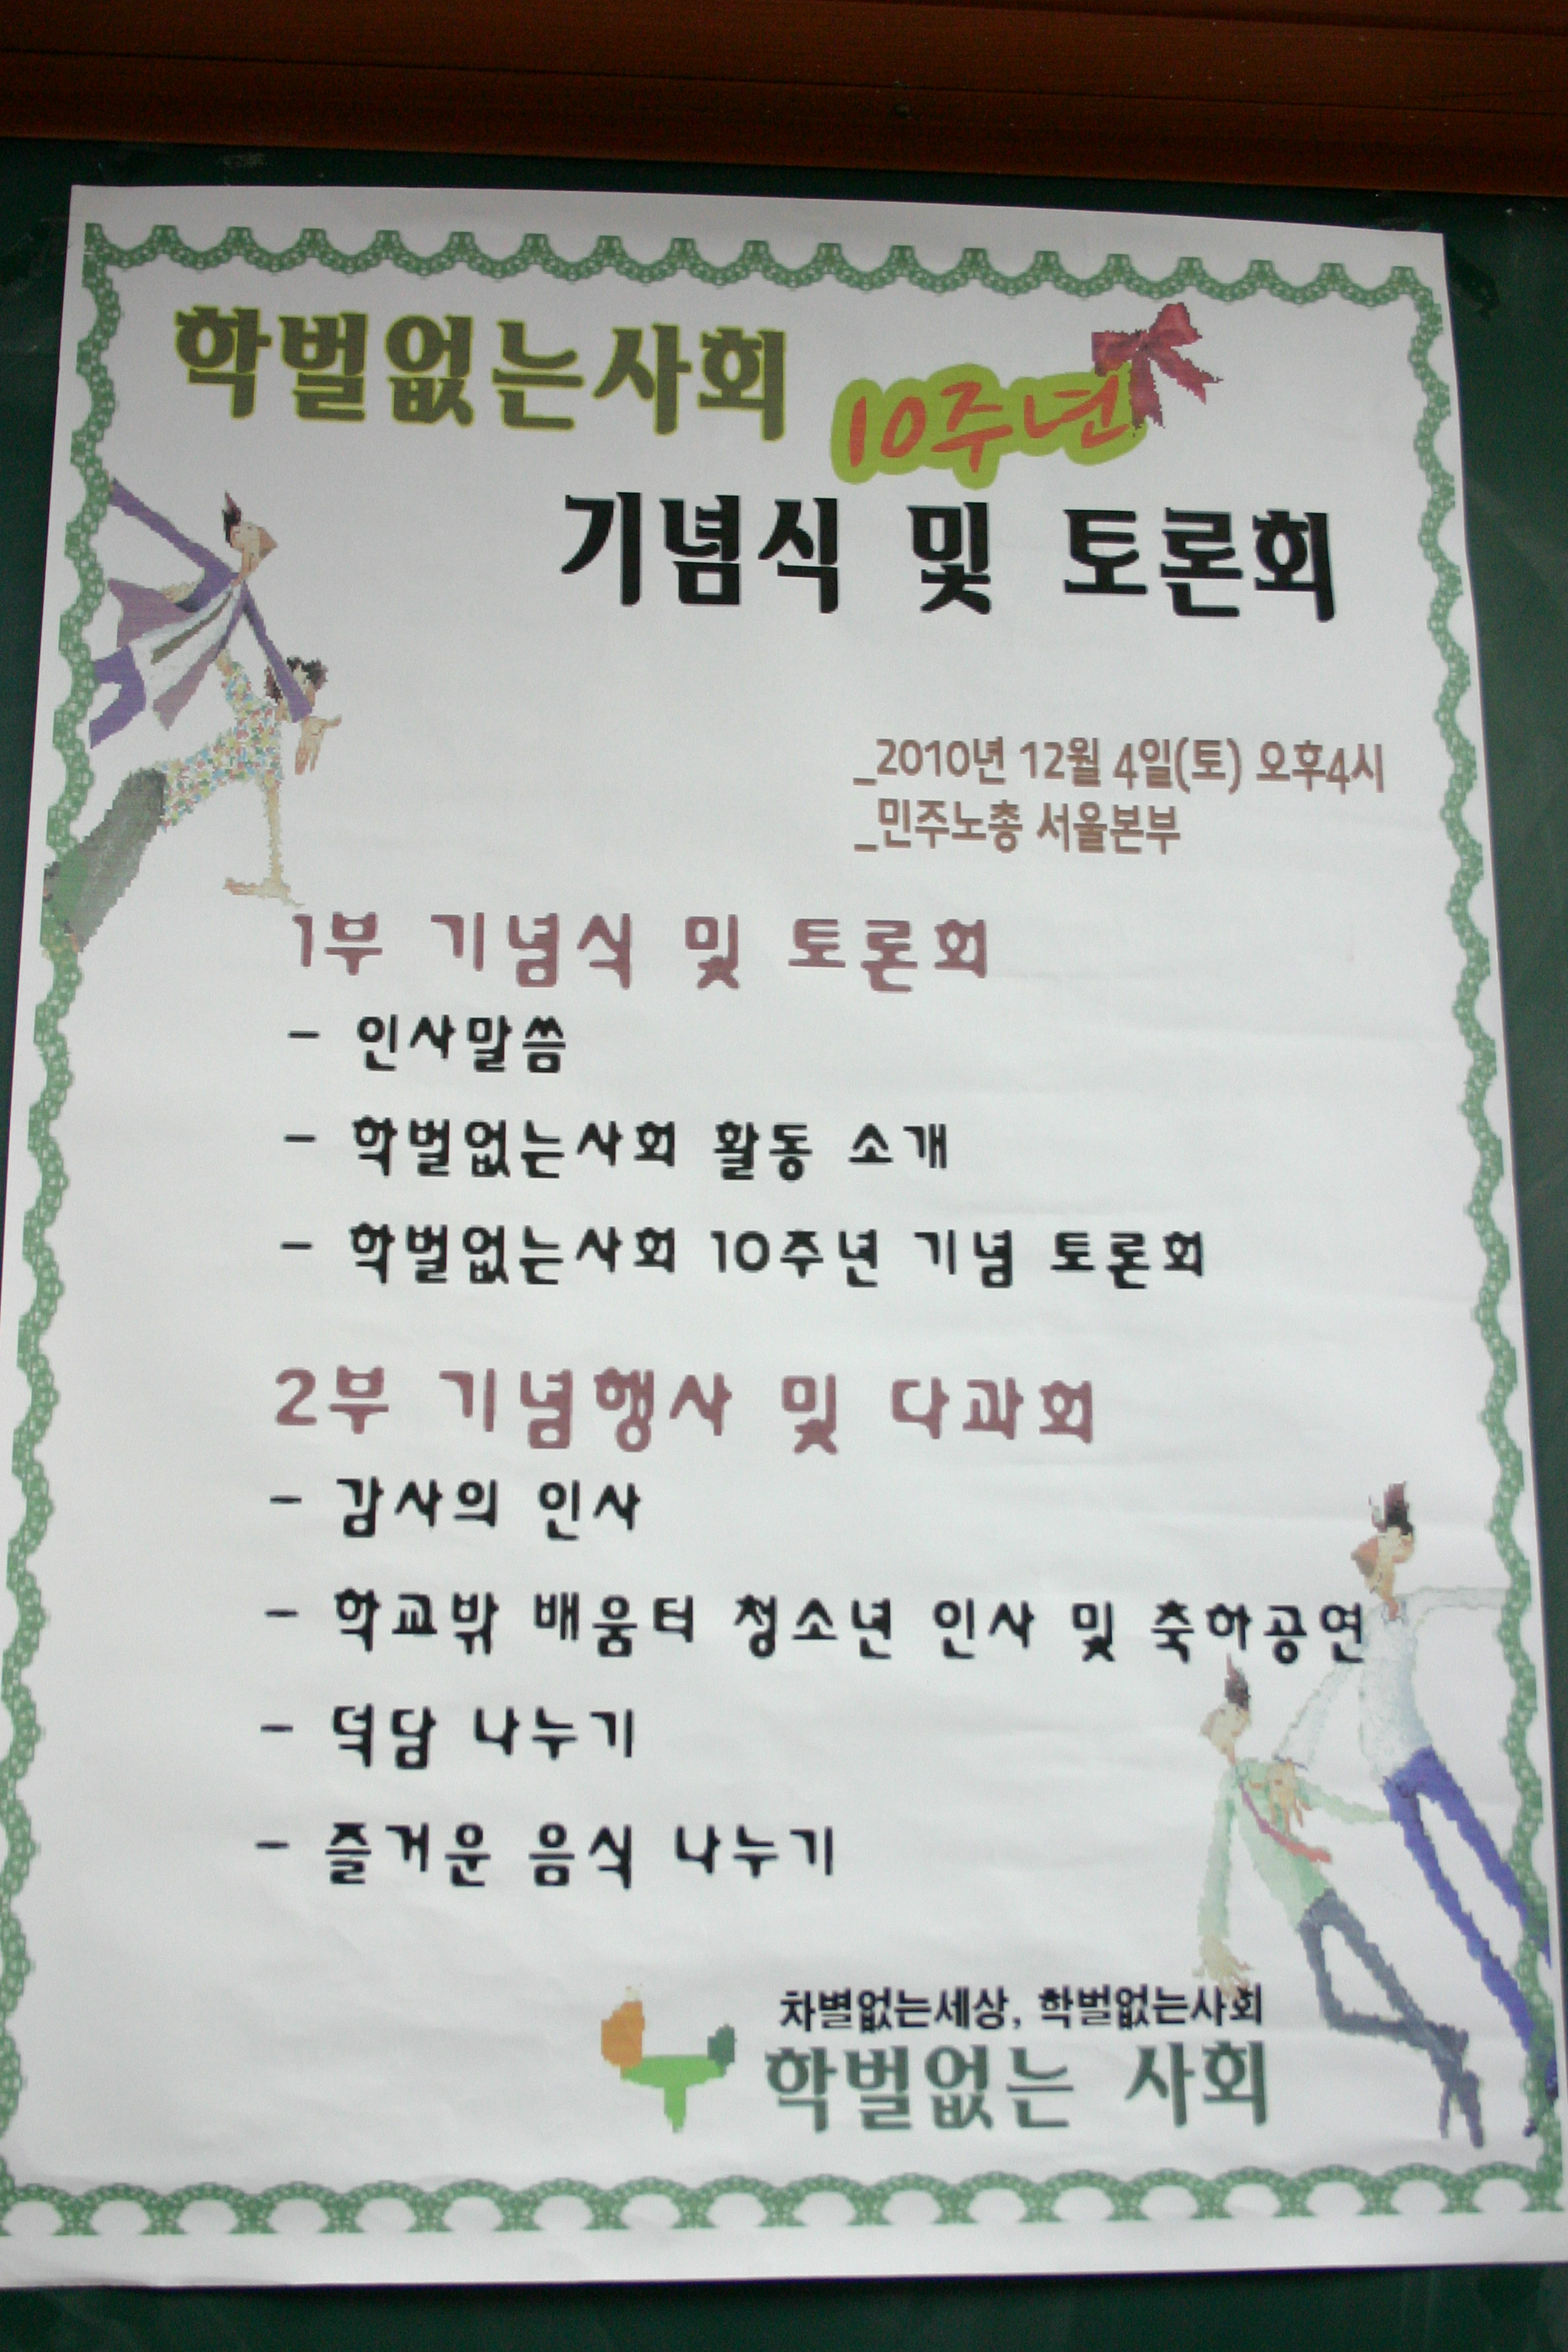 학벌없는사회 10주년
기념식 및 토론회
_2010년 12월 4일(토) 오후4시
_민주노총 서울본부
1부 기념식 및 토론회
- 인사말씀
- 학벌없는사회 활동 소개
- 학벌없는사회 10주년 기념 토론회
2부 기념행사 및 다과회
- 감사의 인사
- 학교밖 배움터 청소년 인사 및 축하공연
- 덕담 나누기
- 즐거운 음식 나누기
차별없는세상, 학벌없는사회
학벌없는 사회